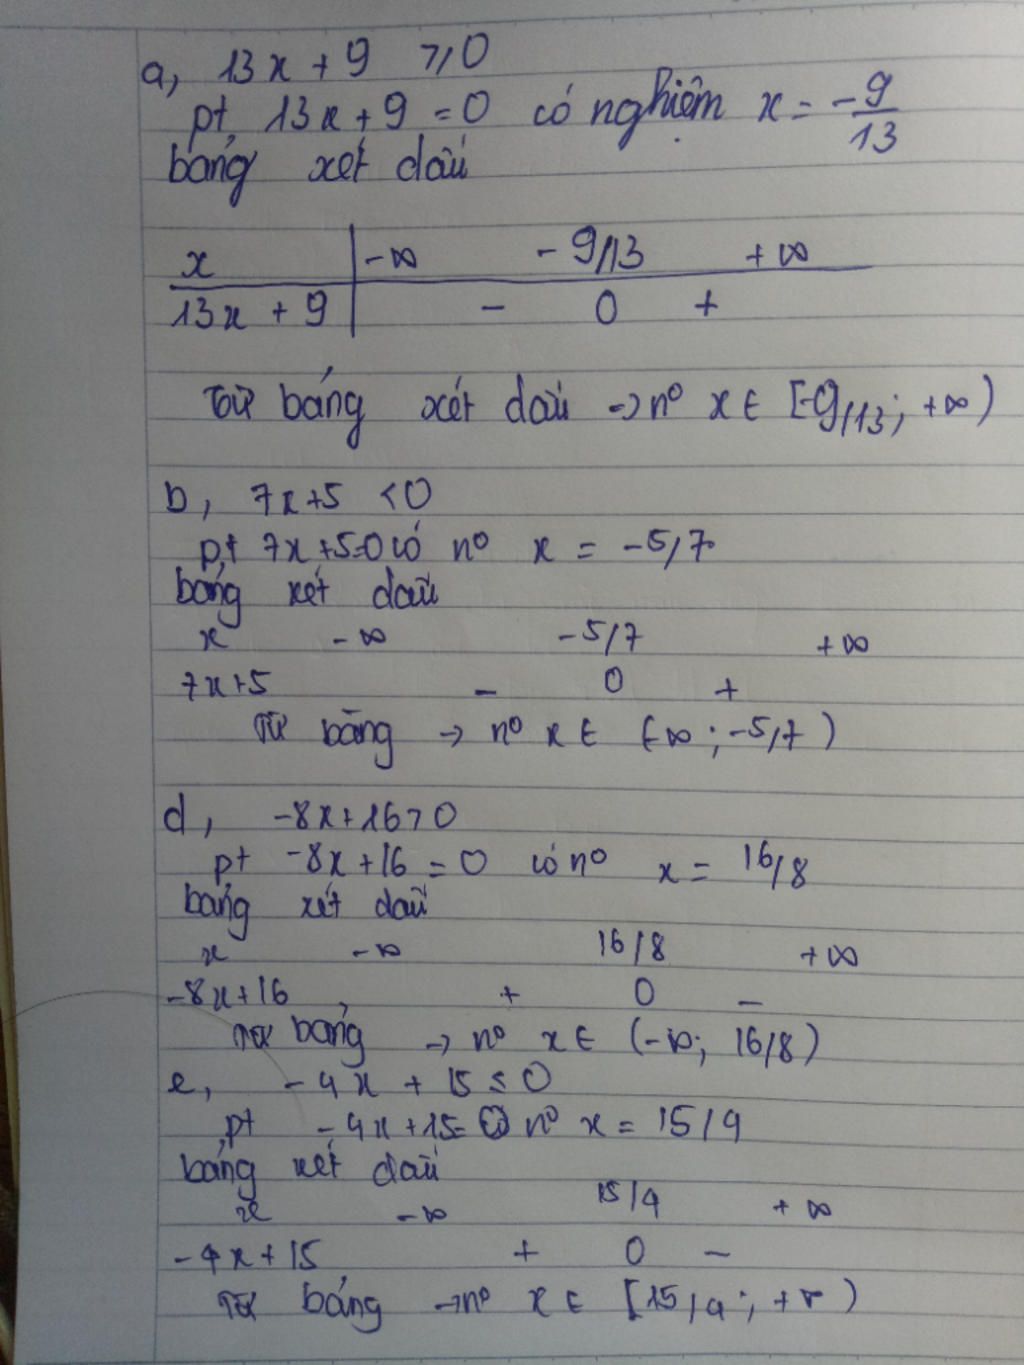 a, 13x + 9 ≥ 0
pt 13x + 9 = 0 có nghiệm x = -9/13
bảng xét dấu
x -∞ -9/13 +∞
13x + 9 - 0 +
Từ bảng xét dấu → n⁰ x ∈ [-9/13; +∞)
b, 7x+5 < 0
pt 7x+5=0 có n⁰ x = -5/7
bảng xét dấu
x -∞ -5/7 +∞
7x+5 - 0 +
Từ bảng → n⁰ x ∈ (-∞; -5/7)
d, -8x+16 > 0
pt -8x+16 = 0 có n⁰ x = 16/8
bảng xét dấu
x -∞ 16/8 +∞
-8x+16 + 0 -
Từ bảng → n⁰ x ∈ (-∞; 16/8)
e, -4x + 15 ≤ 0
pt -4x+15= 0 n⁰ x = 15/4
bảng xét dấu
x -∞ 15/4 +∞
-4x+15 + 0 -
Từ bảng → n⁰ x ∈ [15/4; +∞)